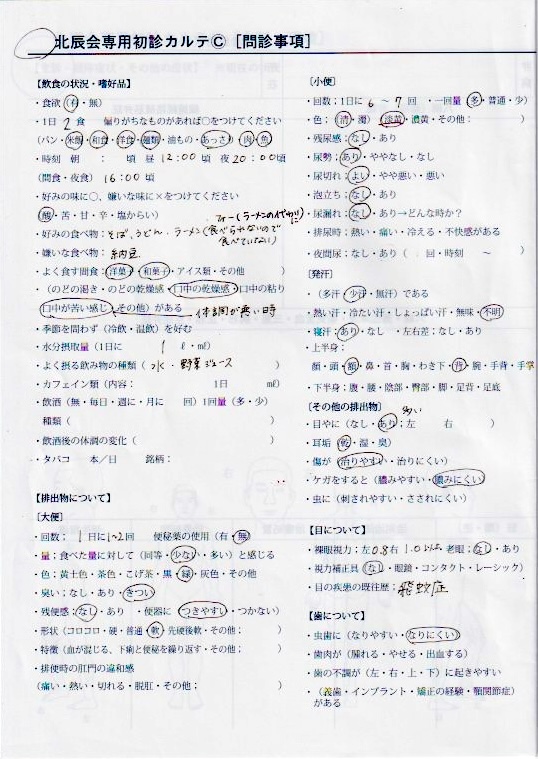 北辰会専用初診カルテ© [問診事項]
【飲食の状況・嗜好品】
・食欲 (有・無)
・1日 2 食 偏りがちなものがあれば○をつけてください
(パン・米飯・和食・洋食・麺類・油もの・あっさり・肉・魚)
・時刻 朝 : 頃 昼 12:00 頃 夜 20:00 頃
(間食・夜食) 16:00
・好みの味に○、嫌いな味に×をつけてください
(酸・苦・甘・辛・塩からい) フォー(ラーメンの代わりに)
・好みの食べ物: そば、うどん、ラーメン(食べられないので食べていない)
・嫌いな食べ物: 納豆
・よく食す間食: (洋菓子・和菓子・アイス類・その他 )
・(のどの渇き・のどの乾燥感・口中の乾燥感・口中の粘り
口中が苦い感じ・その他)がある 体調が悪い時
・季節を問わず (冷飲・温飲) を好む
・水分摂取量 (1日に 1 ℓ・mℓ)
・よく摂る飲み物の種類 ( 水、野菜ジュース )
・カフェイン類 (内容: 1日 mℓ)
・飲酒 (無・毎日・週に・月に 回) 1回量 (多・少)
種類 ( )
・飲酒後の体調の変化 ( )
・タバコ 本/日 銘柄:
【排出物について】
[大便]
・回数; 1日に1~2回 便秘薬の使用 (有・無)
・量: 食べた量に対して (同等・少ない・多い) と感じる
・色: 黄土色・茶色・こげ茶・黒・緑・灰色・その他
・臭い; なし・あり・きつい
・残便感; なし・あり ・便器に (つきやすい・つかない)
・形状 (コロコロ・硬・普通・軟・先硬後軟・その他; )
・特徴 (血が混じる、下痢と便秘を繰り返す・その他; )
・排便時の肛門の違和感
(痛い・熱い・切れる・脱肛・その他; )
[小便]
・回数; 1日に 6 ~ 7 回 ・一回量 (多・普通・少)
・色: (清・濁) (淡黄・濃黄・その他: )
・残尿感; なし・あり
・尿勢; あり・ややなし・なし
・尿切れ; よい・やや悪い・悪い
・泡立ち; なし・あり
・尿漏れ; なし・あり→どんな時か?
・排尿時; 熱い・痛い・冷える・不快感がある
・夜間尿; なし・あり ( 回・時刻 ~ )
[発汗]
・(多汗・少汗・無汗) である
・熱い汗・冷たい汗・しょっぱい汗・無味・不明
・寝汗; あり・なし ・左右差; なし・あり
・上半身:
顔・頭・額・鼻・首・胸・わき下・背・腕・手背・手掌
・下半身: 腹・腰・陰部・臀部・脚・足背・足底
[その他の排出物]
・目やに (なし・あり; 左 右 )
・耳垢 (乾・湿・臭)
・傷が (治りやすい・治りにくい)
・ケガをすると (膿みやすい・膿みにくい)
・虫に (刺されやすい・さされにくい)
【目について】
・裸眼視力: 左0.8右 1.0 老眼; なし・あり
・視力補正具 (なし・眼鏡・コンタクト・レーシック)
・目の疾患の既往歴; 飛蚊症
【歯について】
・虫歯に (なりやすい・なりにくい)
・歯肉が (腫れる・やせる・出血する)
・歯の不調が (左・右・上・下) に起きやすい
・(義歯・インプラント・矯正の経験・顎関節症)
がある